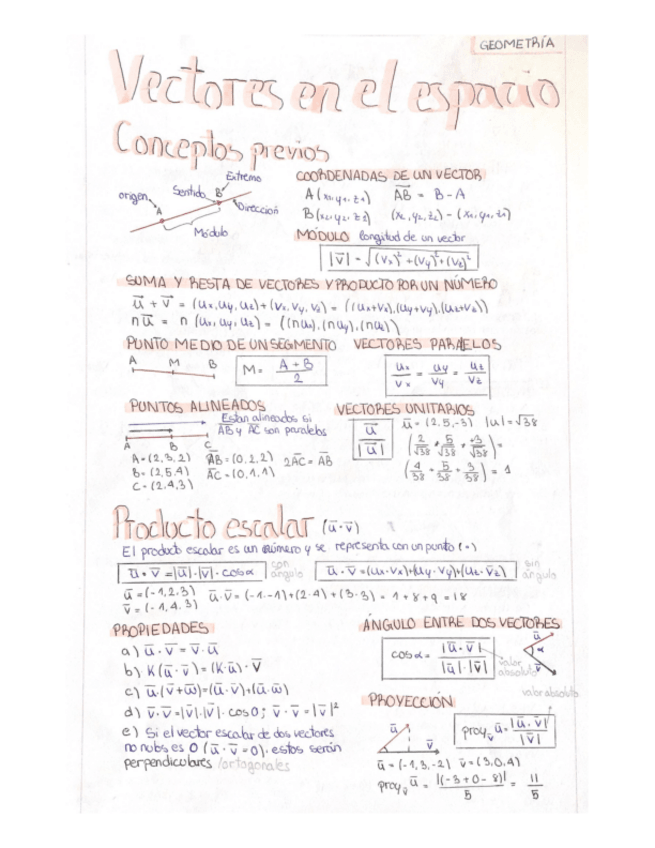 GEOMETRÍA
Vectores en el espacio
Conceptos previos
origen
A
Sentido
B
Extremo
Dirección
Módulo
COORDENADAS DE UN VECTOR
A(x₁,y₁,z₁) AB = B - A
B(x₂,y₂,z₂) (x₂,y₂,z₂) - (x₁,y₁,z₁)
MÓDULO longitud de un vector
|v| = √(vx)² + (vy)² + (vz)²
SUMA Y RESTA DE VECTORES Y PRODUCTO POR UN NÚMERO
u + v = (ux,uy,uz)+(vx,vy,vz) = ((ux+vx),(uy+vy),(uz+vz))
nu = n(ux,uy,uz) = ((nux),(nuy),(nuz))
PUNTO MEDIO DE UN SEGMENTO
A M B
M = A + B / 2
VECTORES PARALELOS
ux/vx = uy/vy = uz/vz
PUNTOS ALINEADOS
Están alineados si
AB y AC son paralelos
A B C
A=(2,3,2) AB=(0,2,2) 2AC=AB
B=(2,5,4) AC=(0,1,1)
C=(2,4,3)
VECTORES UNITARIOS
u / |u|
u=(2,5,-3) |u|=√38
Producto escalar (u·v)
El producto escalar es un número y se representa con un punto (·)
u · v = |u|·|v|·cosα con ángulo
u · v = (ux·vx)+(uy·vy)+(uz·vz) sin ángulo
u=(-1,2,3) u·v=(-1·-1)+(2·4)+(3·3) = 1+8+9 = 18
v=(-1,4,3)
PROPIEDADES
a) u·v = v·u
b) K(u·v)=(K·u)·v
c) u·(v+w)=(u·v)+(u·w)
d) v·v=|v|·|v|·cos0; v·v=|v|²
e) Si el vector escalar de dos vectores
no nulos es 0 (u·v=0), estos serán
perpendiculares /ortogonales
ÁNGULO ENTRE DOS VECTORES
cosα = |u·v| / |u|·|v|
valor absoluto
u
α
v
PROYECCIÓN
u
v
valor absoluto
proyᵥ u = |u·v| / |v|
u=(-1,3,-2) v=(3,0,4)
proyᵥ u = |(-3+0-8)| / 5 = 11 / 5